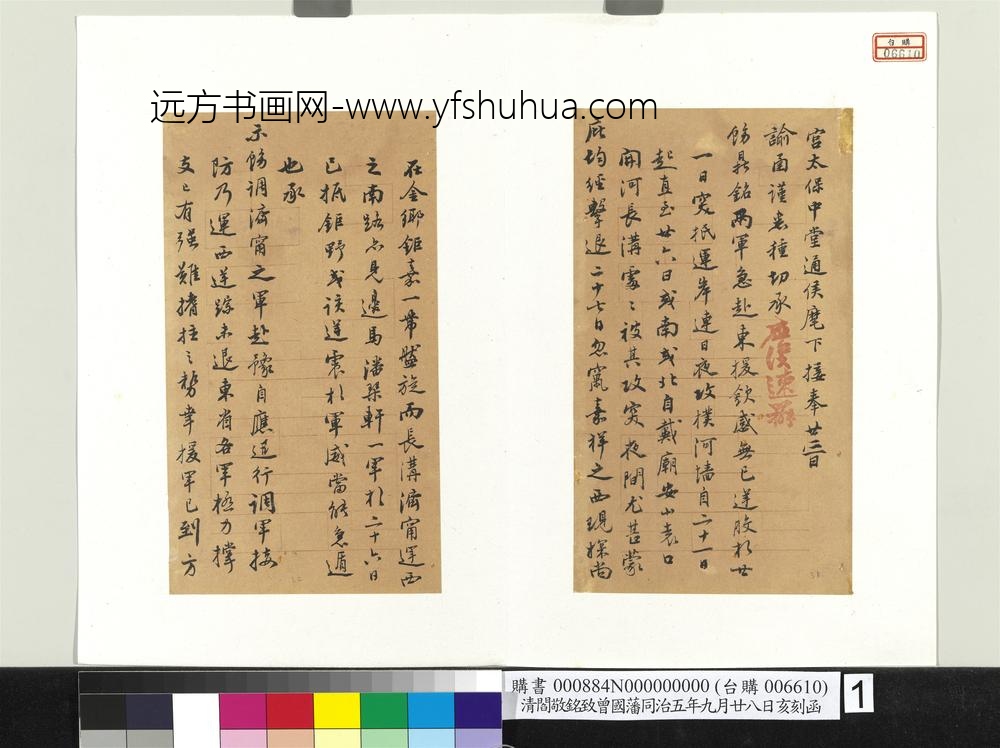 台購
06610
远方书画网-www.yfshuhua.com
宮太保中堂通侯麾下接奉廿三日
諭函謹悉種切承
飭鼎銘兩軍急赴東援欽感無已逆股於廿
一日突抵運岸連日夜攻撲河墻自二十一日
起直至廿六日或南或北自戴廟安山袁口
開河長溝處處被其攻突夜間尤甚蒙
庇均經擊退二十七日忽竄嘉祥之西現探尚
在金鄉鉅嘉一帶盤旋而長溝濟甯運西
之南路亦見邊馬潘琴軒一軍於二十六日
已抵鉅野或該逆震於軍威當能急遁
也承
示飭調濟甯之軍赴豫自應遵行調軍接
防乃運西逆蹤未退東省各軍極力撐
支已有強難搘拄之勢幸援軍已到方
購書 000884N000000000 (台購 006610)
清閻敬銘致曾國藩同治五年九月廿八日亥刻函
1